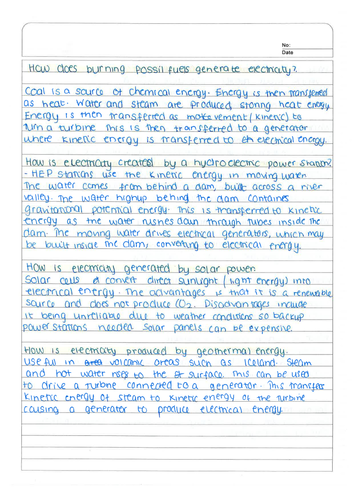 No:
Date
How does burning fossil fuels generate electricity?
Coal is a source of chemical energy. Energy is then transferred
as heat. Water and steam are produced storing heat energy
Energy is then transferred as movement (kinetic) to
turn a turbine this is then transferred to a generator
where kinetic energy is transferred to electrical energy.
How is electricity created by a hydroelectric power station?
- HEP stations use the kinetic energy in moving water.
The water comes from behind a dam, built across a river
valley. The water high up behind the dam contains
gravitational potential energy. This is transferred to kinetic
energy as the water rushes down through tubes inside the
dam. The moving water drives electrical generators, which may
be built inside the dam, converting to electrical energy.
How is electricity generated by solar power
Solar cells convert direct sunlight (light energy) into
electrical energy. The advantages is that it is a renewable
source and does not produce CO2. Disadvantages include
it being unreliable due to weather conditions so backup
power stations needed. Solar panels can be expensive.
How is electricity produced by geothermal energy.
Useful in volcanic areas such as Iceland. Steam
and hot water rises to the surface. This can be used
to drive a turbine connected to a generator. This transfers
kinetic energy of steam to kinetic energy of the turbine
causing a generator to produce electrical energy.